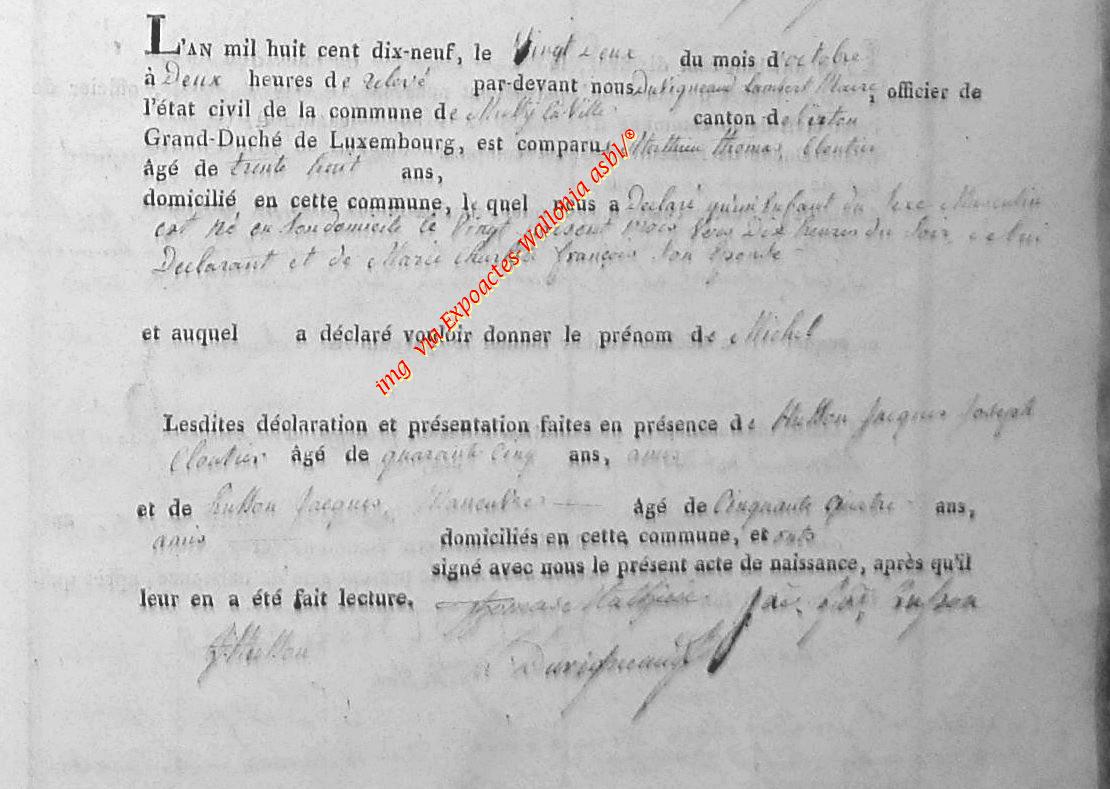 L'AN mil huit cent dix-neuf, le Vingt Deux du mois d'octobre
à Deux heures de relevé par-devant nous Duvigneaud Lambert Maire, officier de
l'état civil de la commune de Mussy la Ville canton de Virton
Grand-Duché de Luxembourg, est comparu Mathieu Thomas, Cloutier
âgé de trente huit ans,
domicilié en cette commune, le quel nous a Declaré qu'un Enfant du sexe Masculin
est Né en son domicile le Vingt présent mois vers Dix heures du Soir, de lui
Declarant et de Marie François son Epouse
et auquel a déclaré vouloir donner le prénom de Michel
Lesdites déclaration et présentation faites en présence de Husson Jacques Joseph
Cloutier âgé de quarante Cinq ans, amis
et de Husson Jacques, Manouvrier âgé de Cinquante quatre ans,
amis domiciliés en cette commune, et ont
signé avec nous le présent acte de naissance, après qu'il
leur en a été fait lecture. Thomas Mathieu Jac. Jos. Husson
J Husson Duvigneaud
img via Expoactes Wallonia asbl/®